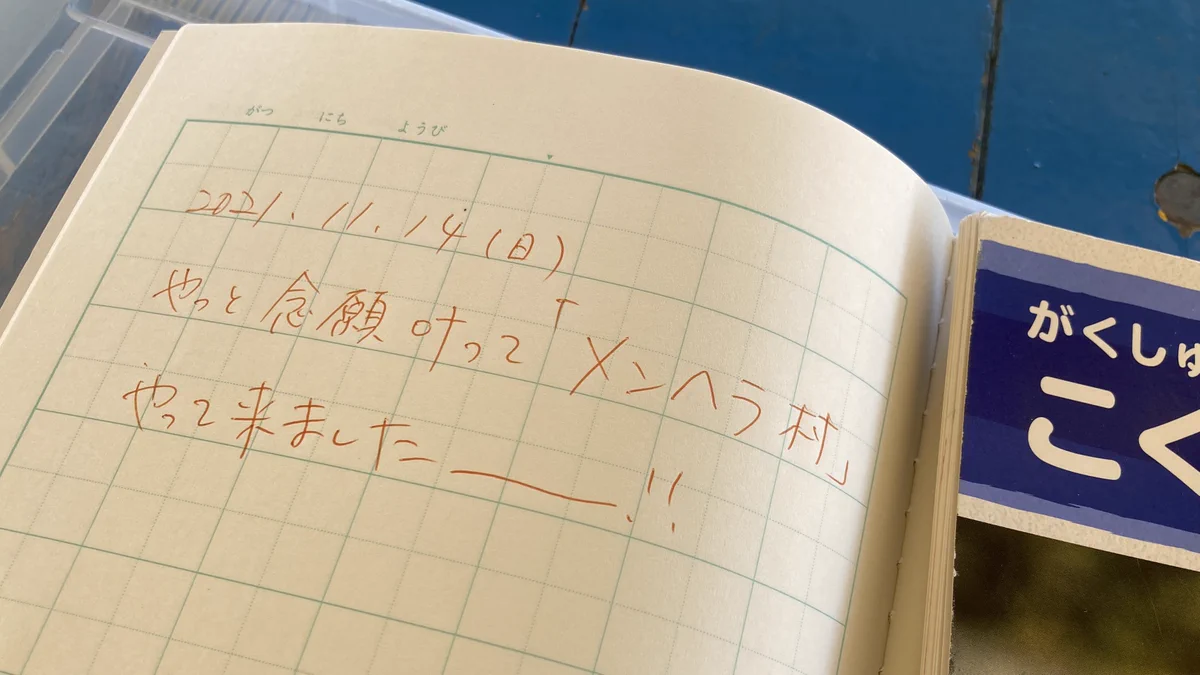 がつ にち ようび
2021.11.14(日)
やっと念願叶って「メンヘラ村」
やって来ましたーーー!!
がくしゅ
こく